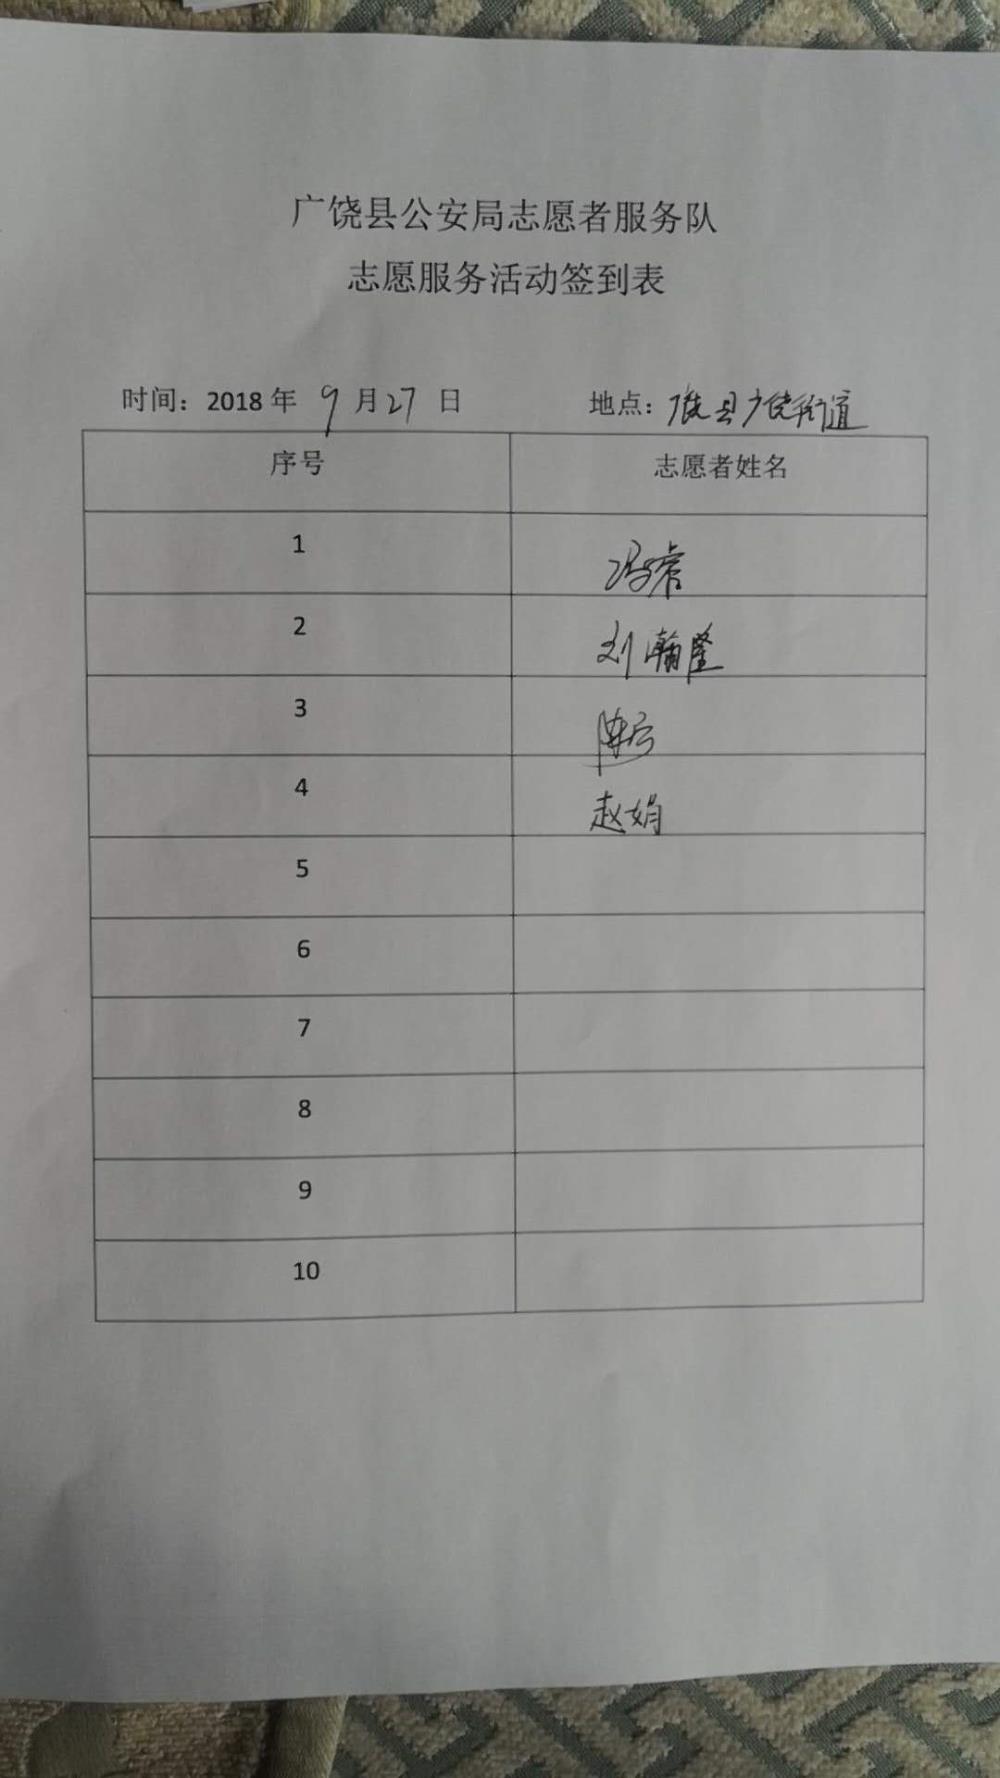 广饶县公安局志愿者服务队
志愿服务活动签到表
时间：2018年 9月27日 地点：广饶县广饶街道
序号 志愿者姓名
1 冯睿
2 刘瀚隆
3
4 赵娟
5
6
7
8
9
10